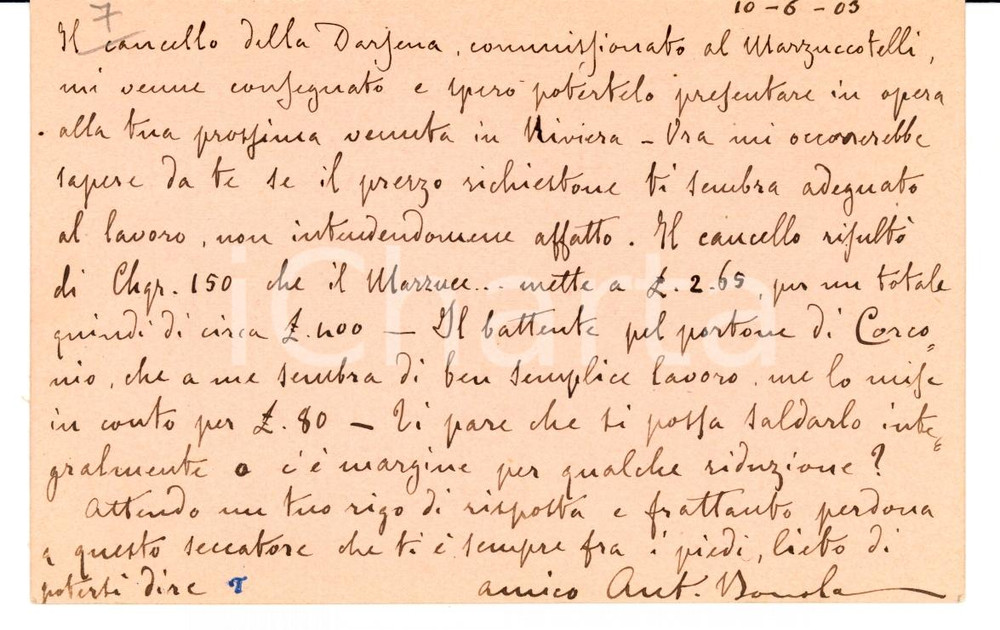 10-6-03
7
Il cancello della Darsena, commissionato al Mazzuccotelli,
mi venne consegnato e spero potertelo presentare in opera
alla tua prossima venuta in Riviera – Ora mi occorrerebbe
sapere da te se il prezzo richiestone ti sembra adeguato
al lavoro, non intendendomene affatto. Il cancello risultò
di Chgr. 150 che il Mazzucc... mette a £. 2.65, per un totale
quindi di circa £. 400 — Il battente pel portone di Corco=
nio, che a me sembra di ben semplice lavoro, me lo mise
in conto per £. 80 — Ti pare che si possa saldarlo inte=
gralmente o c'è margine per qualche riduzione?
Attendo un tuo rigo di risposta e frattanto perdona
a questo seccatore che ti è sempre fra i piedi, lieto di
poterti dire T
amico Ant. Bonola
iCharta